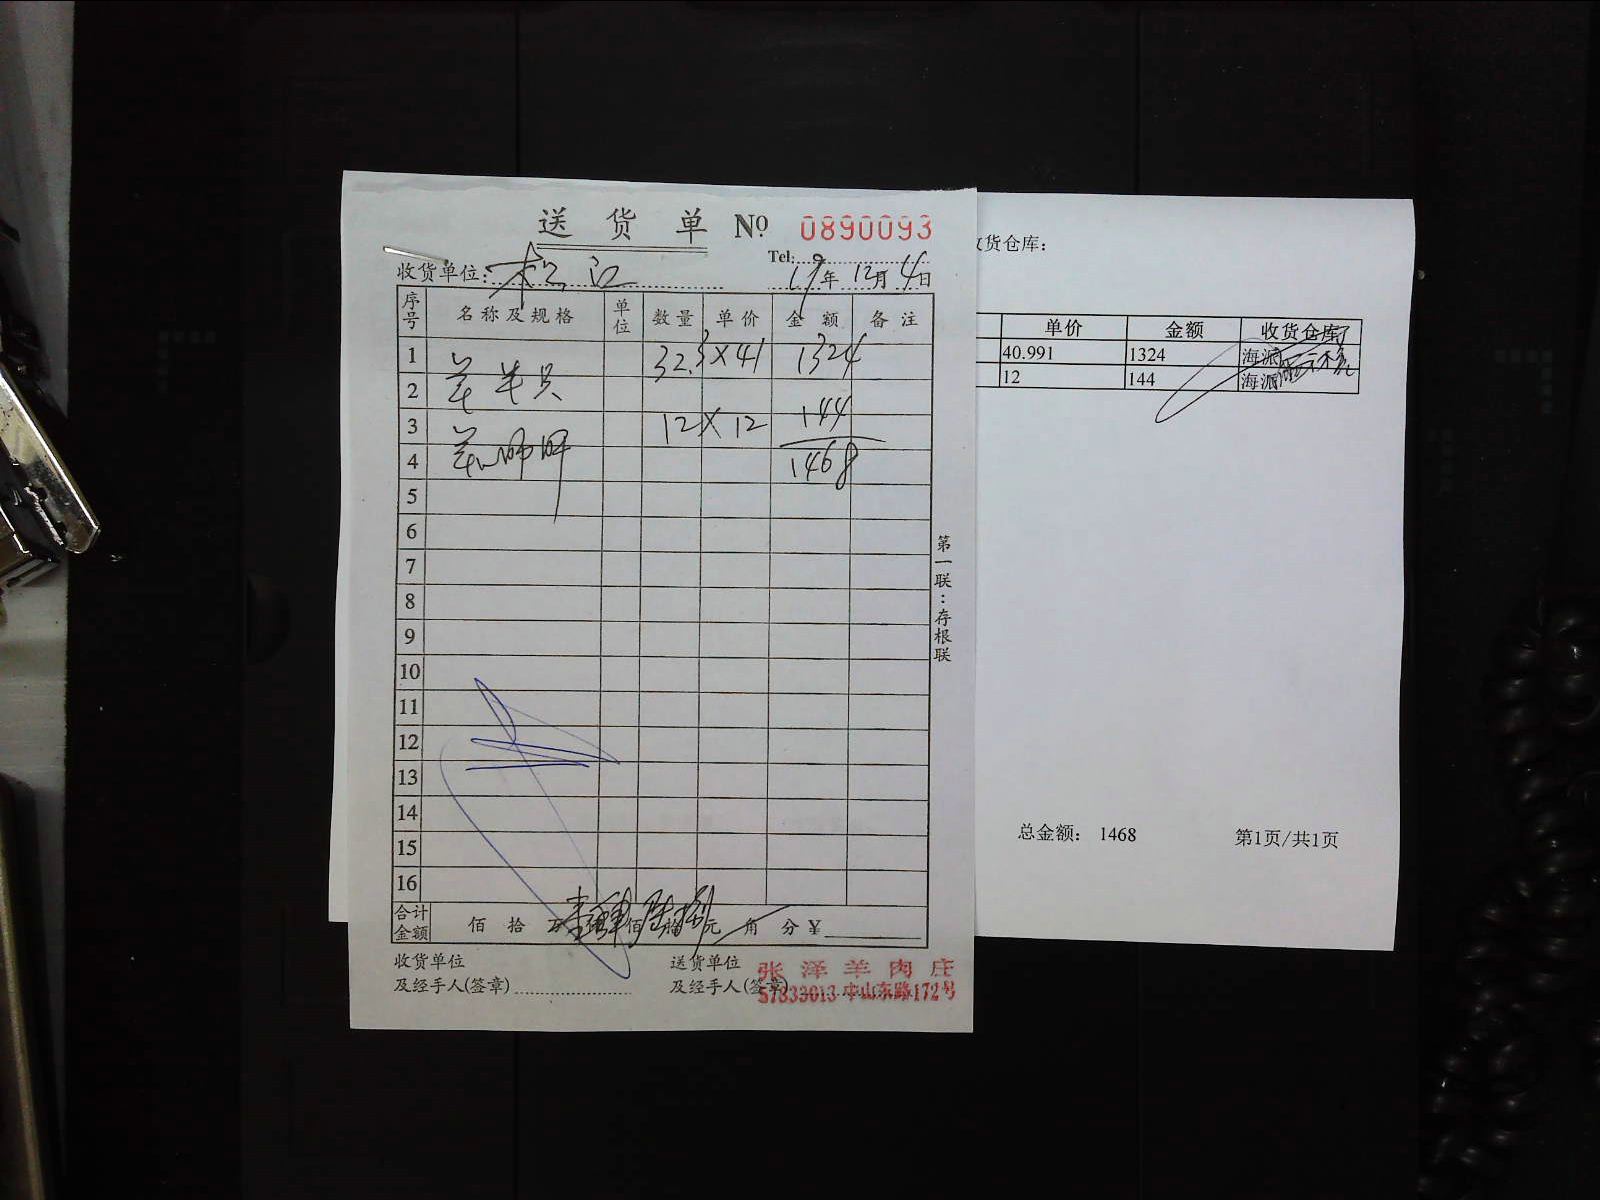 送货单 № 0890093
Tel:
收货单位: 松江 19年12月4日
序号 名称及规格 单位 数量 单价 金额 备注
1 32.3×41 1324
2 羊
3 12×12 144
4 羊 1468
5
6
7
8
9
10
11
12
13
14
15
16
合计金额 佰 拾 万 佰 元 角 分 ¥
收货单位 送货单位
及经手人(签章) 及经手人(签章)
张泽羊肉庄
57833013 中山东路172号
第一联:存根联
货仓库:
单价 金额 收货仓库
40.991 1324 海派
12 144 海派
总金额: 1468 第1页/共1页